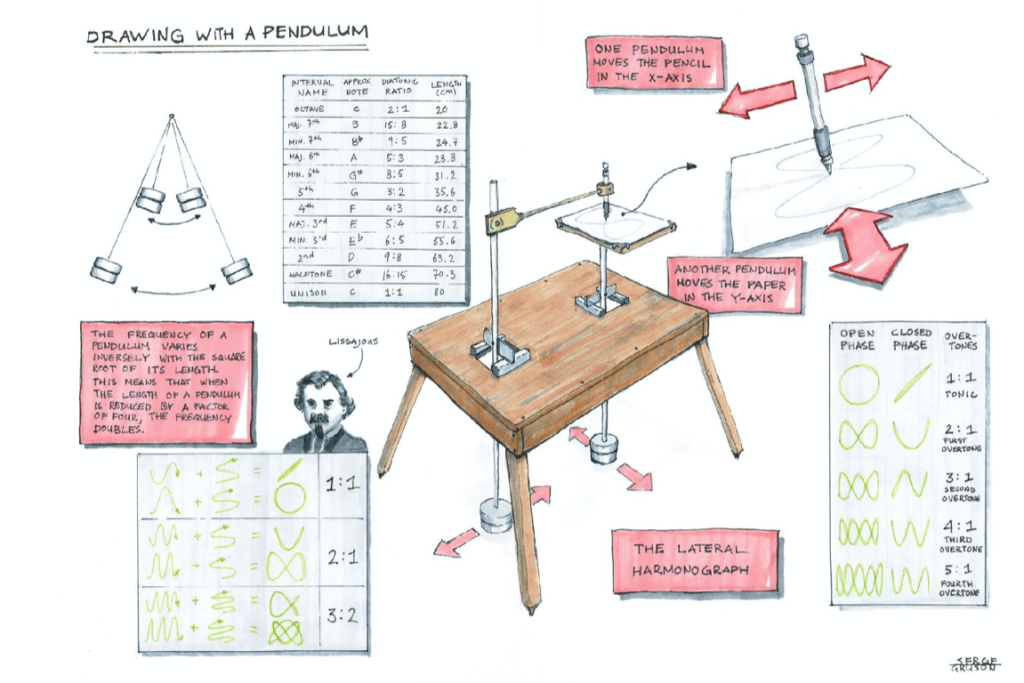 DRAWING WITH A PENDULUM
INTERVAL NAME APPROX. NOTE DIATONIC RATIO LENGTH (CM)
OCTAVE C 2:1 20
MAJ. 7th B 15:8 22.8
MIN. 7th Bb 9:5 24.7
MAJ. 6th A 5:3 28.8
MIN. 6th G# 8:5 31.2
5th G 3:2 35.6
4th F 4:3 45.0
MAJ. 3rd E 5:4 51.2
MIN. 3rd Eb 6:5 55.6
2nd D 9:8 63.2
HALFTONE C# 16:15 70.3
UNISON C 1:1 80
ONE PENDULUM
MOVES THE PENCIL
IN THE X-AXIS
ANOTHER PENDULUM
MOVES THE PAPER
IN THE Y-AXIS
THE FREQUENCY OF A
PENDULUM VARIES
INVERSELY WITH THE SQUARE
ROOT OF ITS LENGTH.
THIS MEANS THAT WHEN
THE LENGTH OF A PENDULUM
IS REDUCED BY A FACTOR
OF FOUR, THE FREQUENCY
DOUBLES.
LISSAJOUS
+ = 1:1
+ =
+ = 2:1
+ =
+ = 3:2
+ =
THE LATERAL
HARMONOGRAPH
OPEN PHASE CLOSED PHASE OVER-TONES
1:1
TONIC
2:1
FIRST
OVERTONE
3:1
SECOND
OVERTONE
4:1
THIRD
OVERTONE
5:1
FOURTH
OVERTONE
SERGE
GRUSON